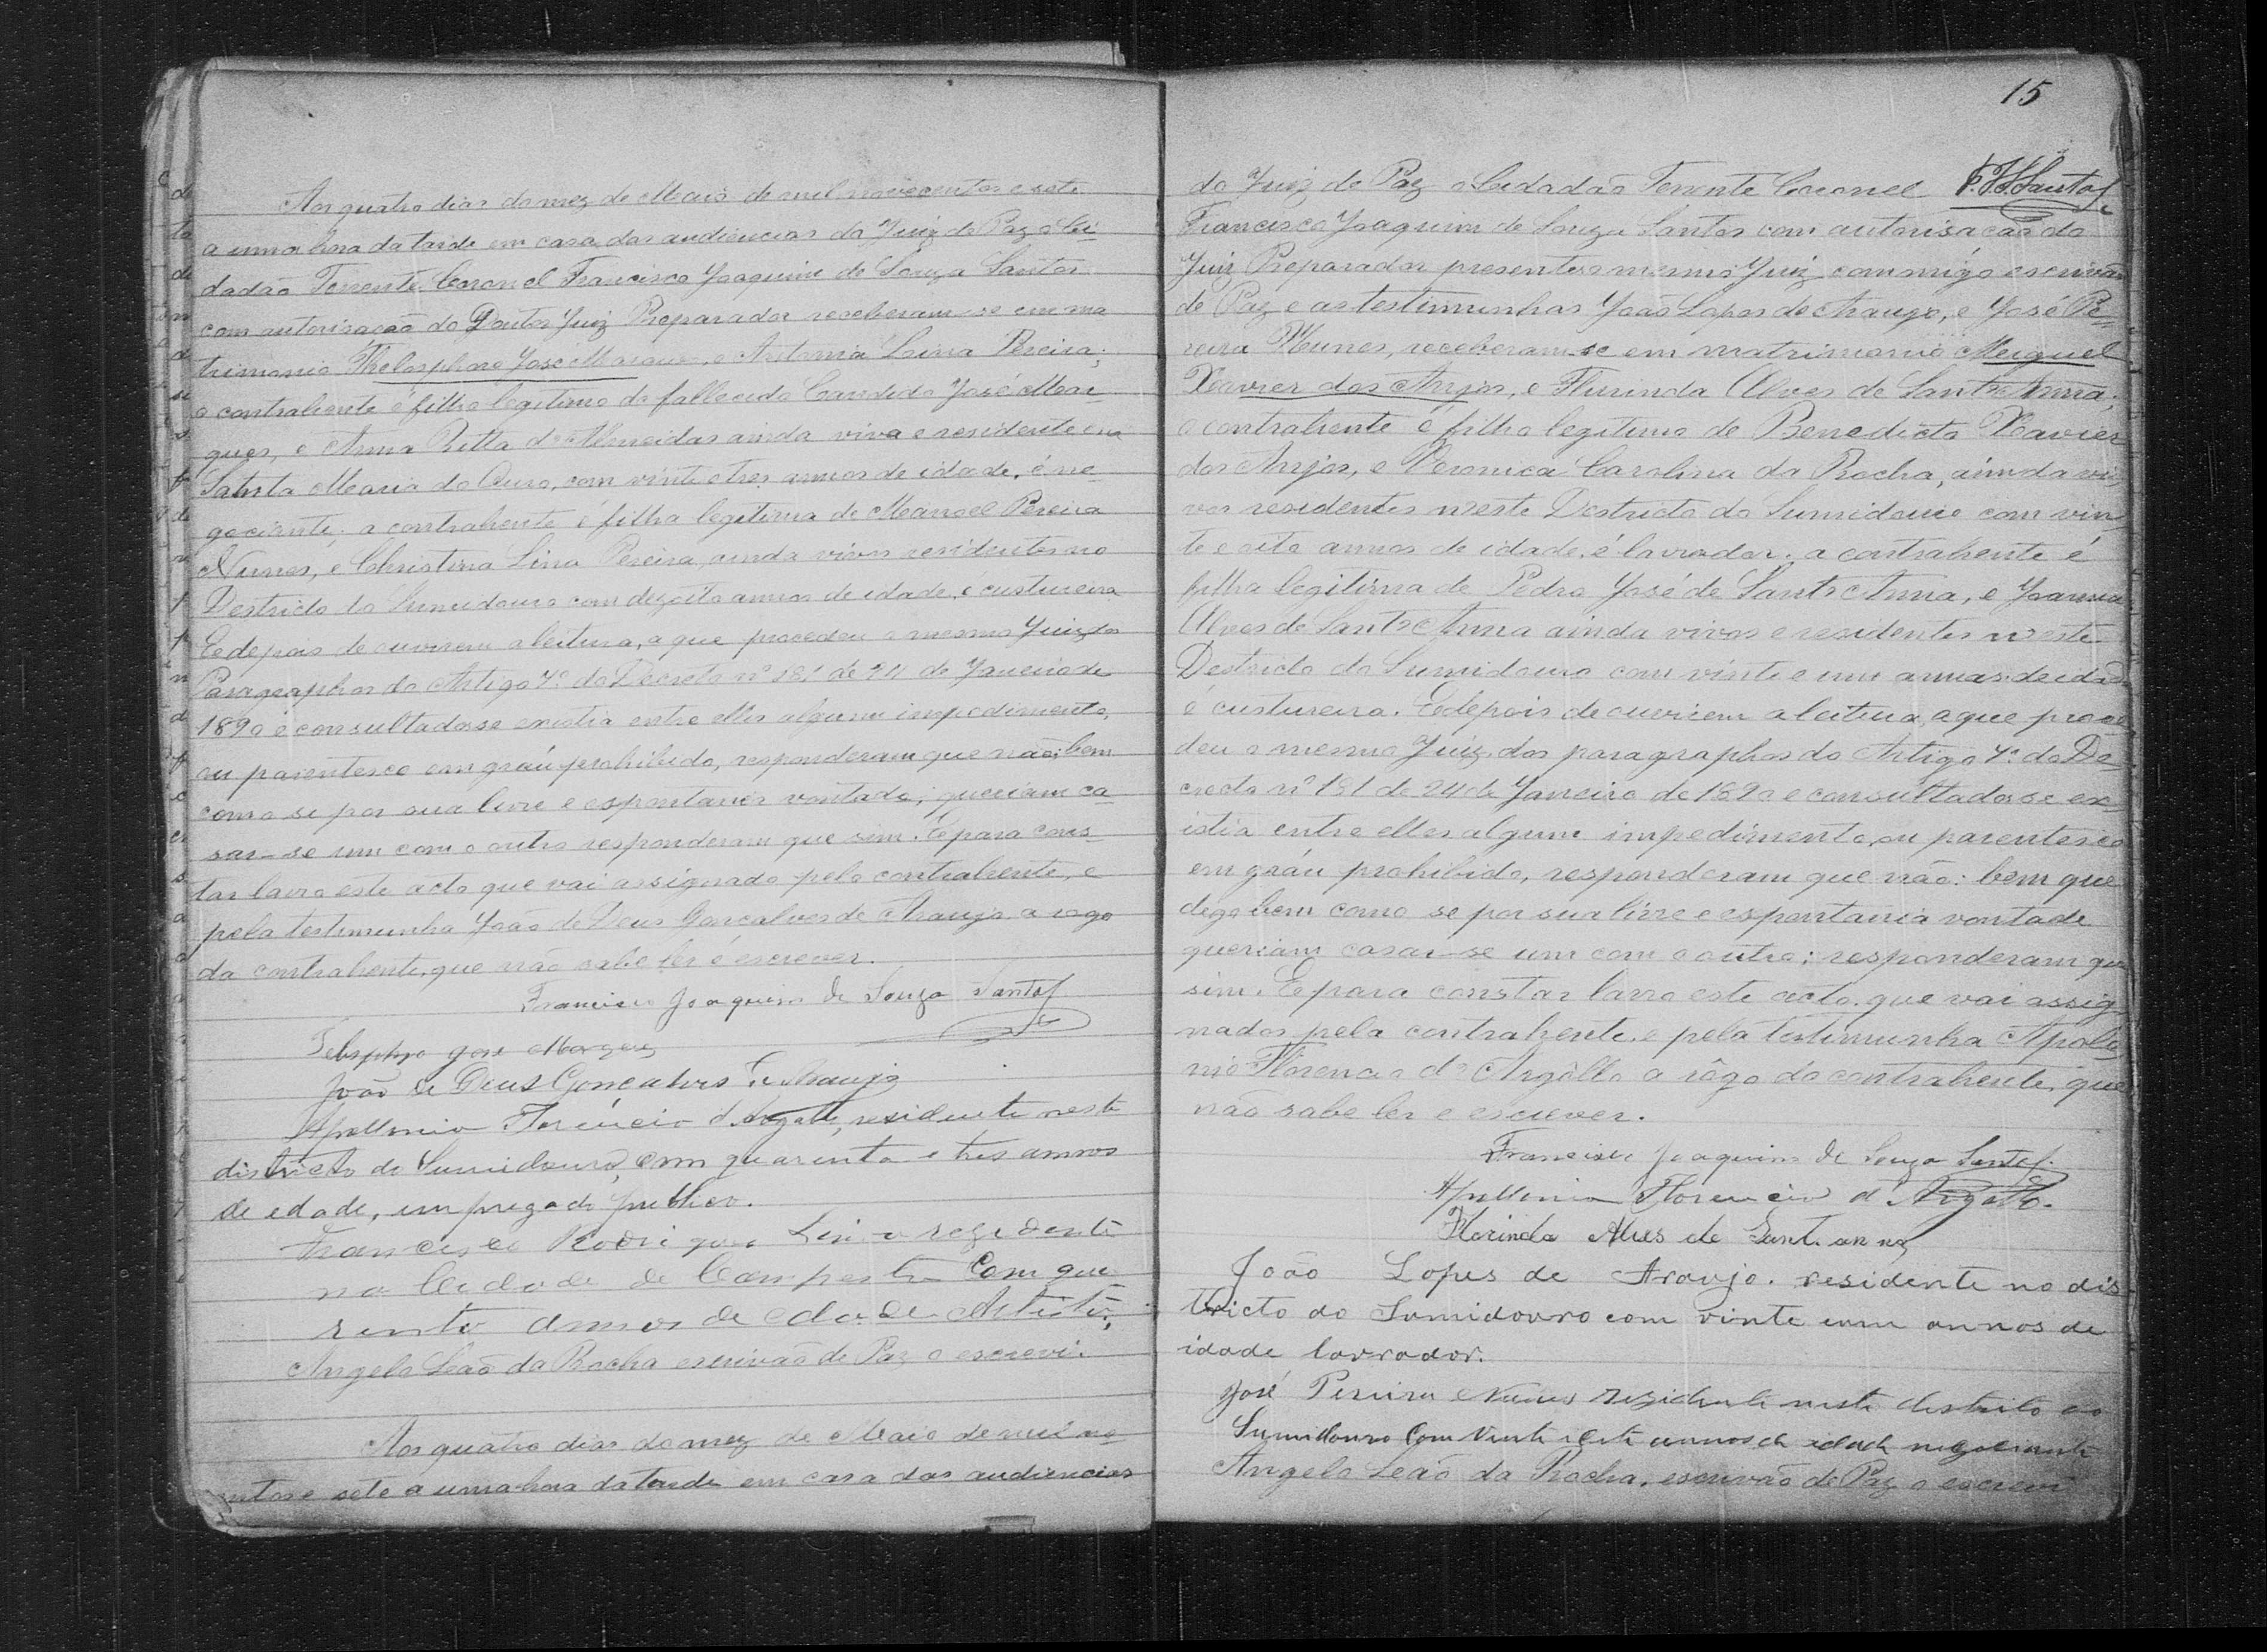 Aos quatro dias do mez de Maio de mil novecentos e sete
a uma hora da tarde em casa das audiencias do Juiz de Paz o Ci-
dadão Tenente Coronel Francisco Joaquim de Souza Santos
com autorisação do Doutor Juiz Preparador receberam-se em ma
trimonio Thelesphoro José Marques, e Antonia Lina Pereira;
o contrahente é filho legitimo do fallecido Candido José Mar-
ques, e Anna Ritta d'Almeidas ainda viva e residente em
Santa Maria do Ouro, com vinte e tres annos de idade, é ne-
gociante; a contrahente é filha legitima de Manoel Pereira
Nunes, e Christina Lina Pereira, ainda vivos residentes no
Destricto do Sumidouro com dezoito annos de idade, é custureira
E depois de ouvirem a leitura, a que procedeu o mesmo Juiz dos
Paragraphos do Artigo 7º do Decreto nº 181 de 24 de Janeiro de
1890 e consultados se existia entre elles algum impedimento,
ou parentesco em gráu prohibido, responderam que não; bem
como se por sua livre e espontania vontade, queriam ca-
sar-se um com o outro responderam que sim. E para cons-
tar lavro este acto que vai assignado pelo contrahente, e
pela testimunha João de Deus Gonçalves de Araujo a rogo
da contrahente, que não sabe ler e escrever.
Francisco Joaquim de Souza Santos
Telesphro José Marques
João de Deus Gonçalves de Araujo
Apollonio Florencio d'Argollo, residente neste
districto do Sumidouro, com quarenta e tres annos
de edade, empregado publico.
Francisco Rodrigues Lino rezidente
na Cidade de Campestre Com qua
renta annos de edade Artista,
Angelo Leão da Rocha escrivão de Paz o escrevi.
Aos quatro dias do mez de Maio de mil no-
centos e sete a uma hora da tarde em casa das audiencias
15
do Juiz de Paz o Cidadão Tenente Coronel F. J. S. Santos
Francisco Joaquim de Souza Santos com autorisação do
Juiz Preparador presentes o mesmo Juiz commigo escrivão
de Paz e as testimunhas João Lopes de Araujo, e José Pe-
reira Nunes, receberam-se em matrimonio Miguel
Xavier dos Anjos, e Flurinda Alves de Sant'Anna;
o contrahente é filho legitimo de Benedicto Xavier
dos Anjos, e Veronica Carolina da Rocha, ainda vi
vos residentes neste Destricto do Sumidouro com vin
te e oito annos de idade, é lavrador; a contrahente é
filha legitima de Pedro José de Sant'Anna, e Joanna
Alves de Sant'Anna ainda vivos e residentes neste
Destricto do Sumidouro com vinte e um annos de idade
é custureira. E depois de ouvirem a leitura, a que proce
deu o mesmo Juiz dos paragraphos do Artigo 7º do De-
creto nº 181 de 24 de Janeiro de 1890 e consultados se ex
istia entre elles algum impedimento, ou parentesco
em gráu prohibido, responderam que não: bem que
digo bem como se por sua livre e espontania vontade
queriam casar-se um com o outro; responderam que
sim. E para constar lavro este acto, que vai assig
nados pela contrahente, e pela testimunha Apolo
nio Florencio d'Argôllo a rôgo do contrahente, que
não sabe ler e escrever.
Francisco Joaquim de Souza Santos
Apollonio Florencio d'Argollo.
Florinda Alves de Sant anna
João Lopes de Araujo. residente no dis
tricto do Sumidouro com vinte e um annos de
idade lavrador.
José Pereira Nunes rezidente neste destrito do
Sumidouro Com Vinte e sete annos de idade negociante
Angelo Leão da Rocha, escrivão de Paz o escrevi